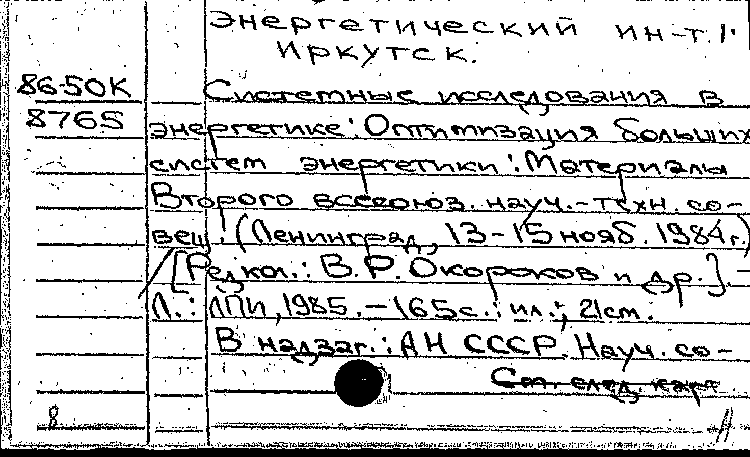 энергетический ин-т.
Иркутск.
86-50К
8765
Системные исследования в
энергетике: Оптимизация больших
систем энергетики: Материалы
Второго всесоюз. науч.-техн. со-
вещ. (Ленинград, 13-15 нояб. 1984г.)
[Редкол.: В.Р. Окороков и др.]. -
Л.: ЛПИ, 1985. - 165с.: ил.; 21см.
В надзаг.: АН СССР. Науч. со-
См. след. карт.
8